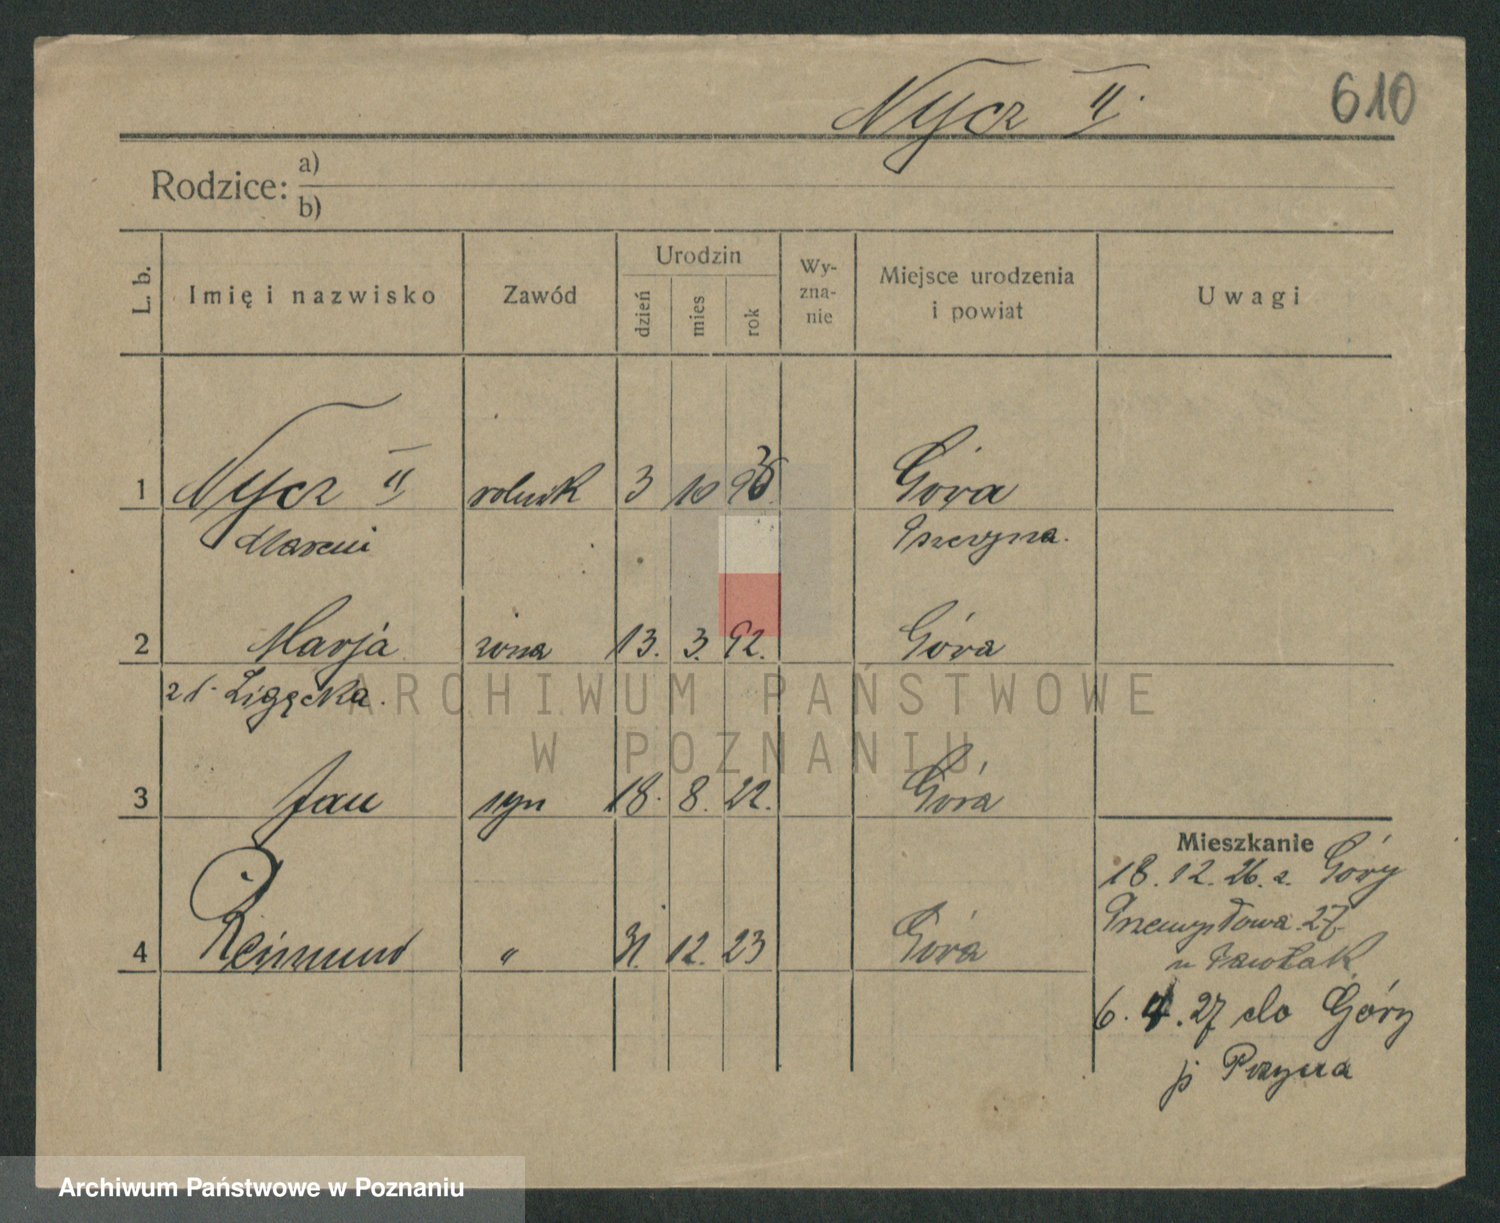 Nycz II.
610
Rodzice:
a)
b)
L. b.
Imię i nazwisko
Zawód
Urodzin
dzień
mies
rok
Wy-
zna-
nie
Miejsce urodzenia
i powiat
Uwagi
1 Nycz II rolnik 3 10 Góra
2 Marja żona 13. 3. 92. Góra
Ligęcka.
3 Jan syn 18. 8. 22. Góra
4 Reimund " 31. 12. 23 Góra
Mieszkanie
18. 12. 26. z. Góry
Przemysłowa 27
u Pawlak
6. 4. 27 do Góry
ARCHIWUM PAŃSTWOWE
W POZNANIU
Archiwum Państwowe w Poznaniu